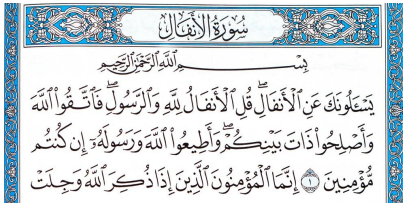 سُورَةُ الْأَنفَالِ
بِسْمِ اللَّهِ الرَّحْمَٰنِ الرَّحِيمِ
يَسْـَٔلُونَكَ عَنِ الْأَنفَالِ ۖ قُلِ الْأَنفَالُ لِلَّهِ وَالرَّسُولِ ۖ فَاتَّقُوا۟ اللَّهَ
وَأَصْلِحُوا۟ ذَاتَ بَيْنِكُمْ ۖ وَأَطِيعُوا۟ اللَّهَ وَرَسُولَهُۥٓ إِن كُنتُم
مُّؤْمِنِينَ ١ إِنَّمَا الْمُؤْمِنُونَ الَّذِينَ إِذَا ذُكِرَ اللَّهُ وَجِلَتْ